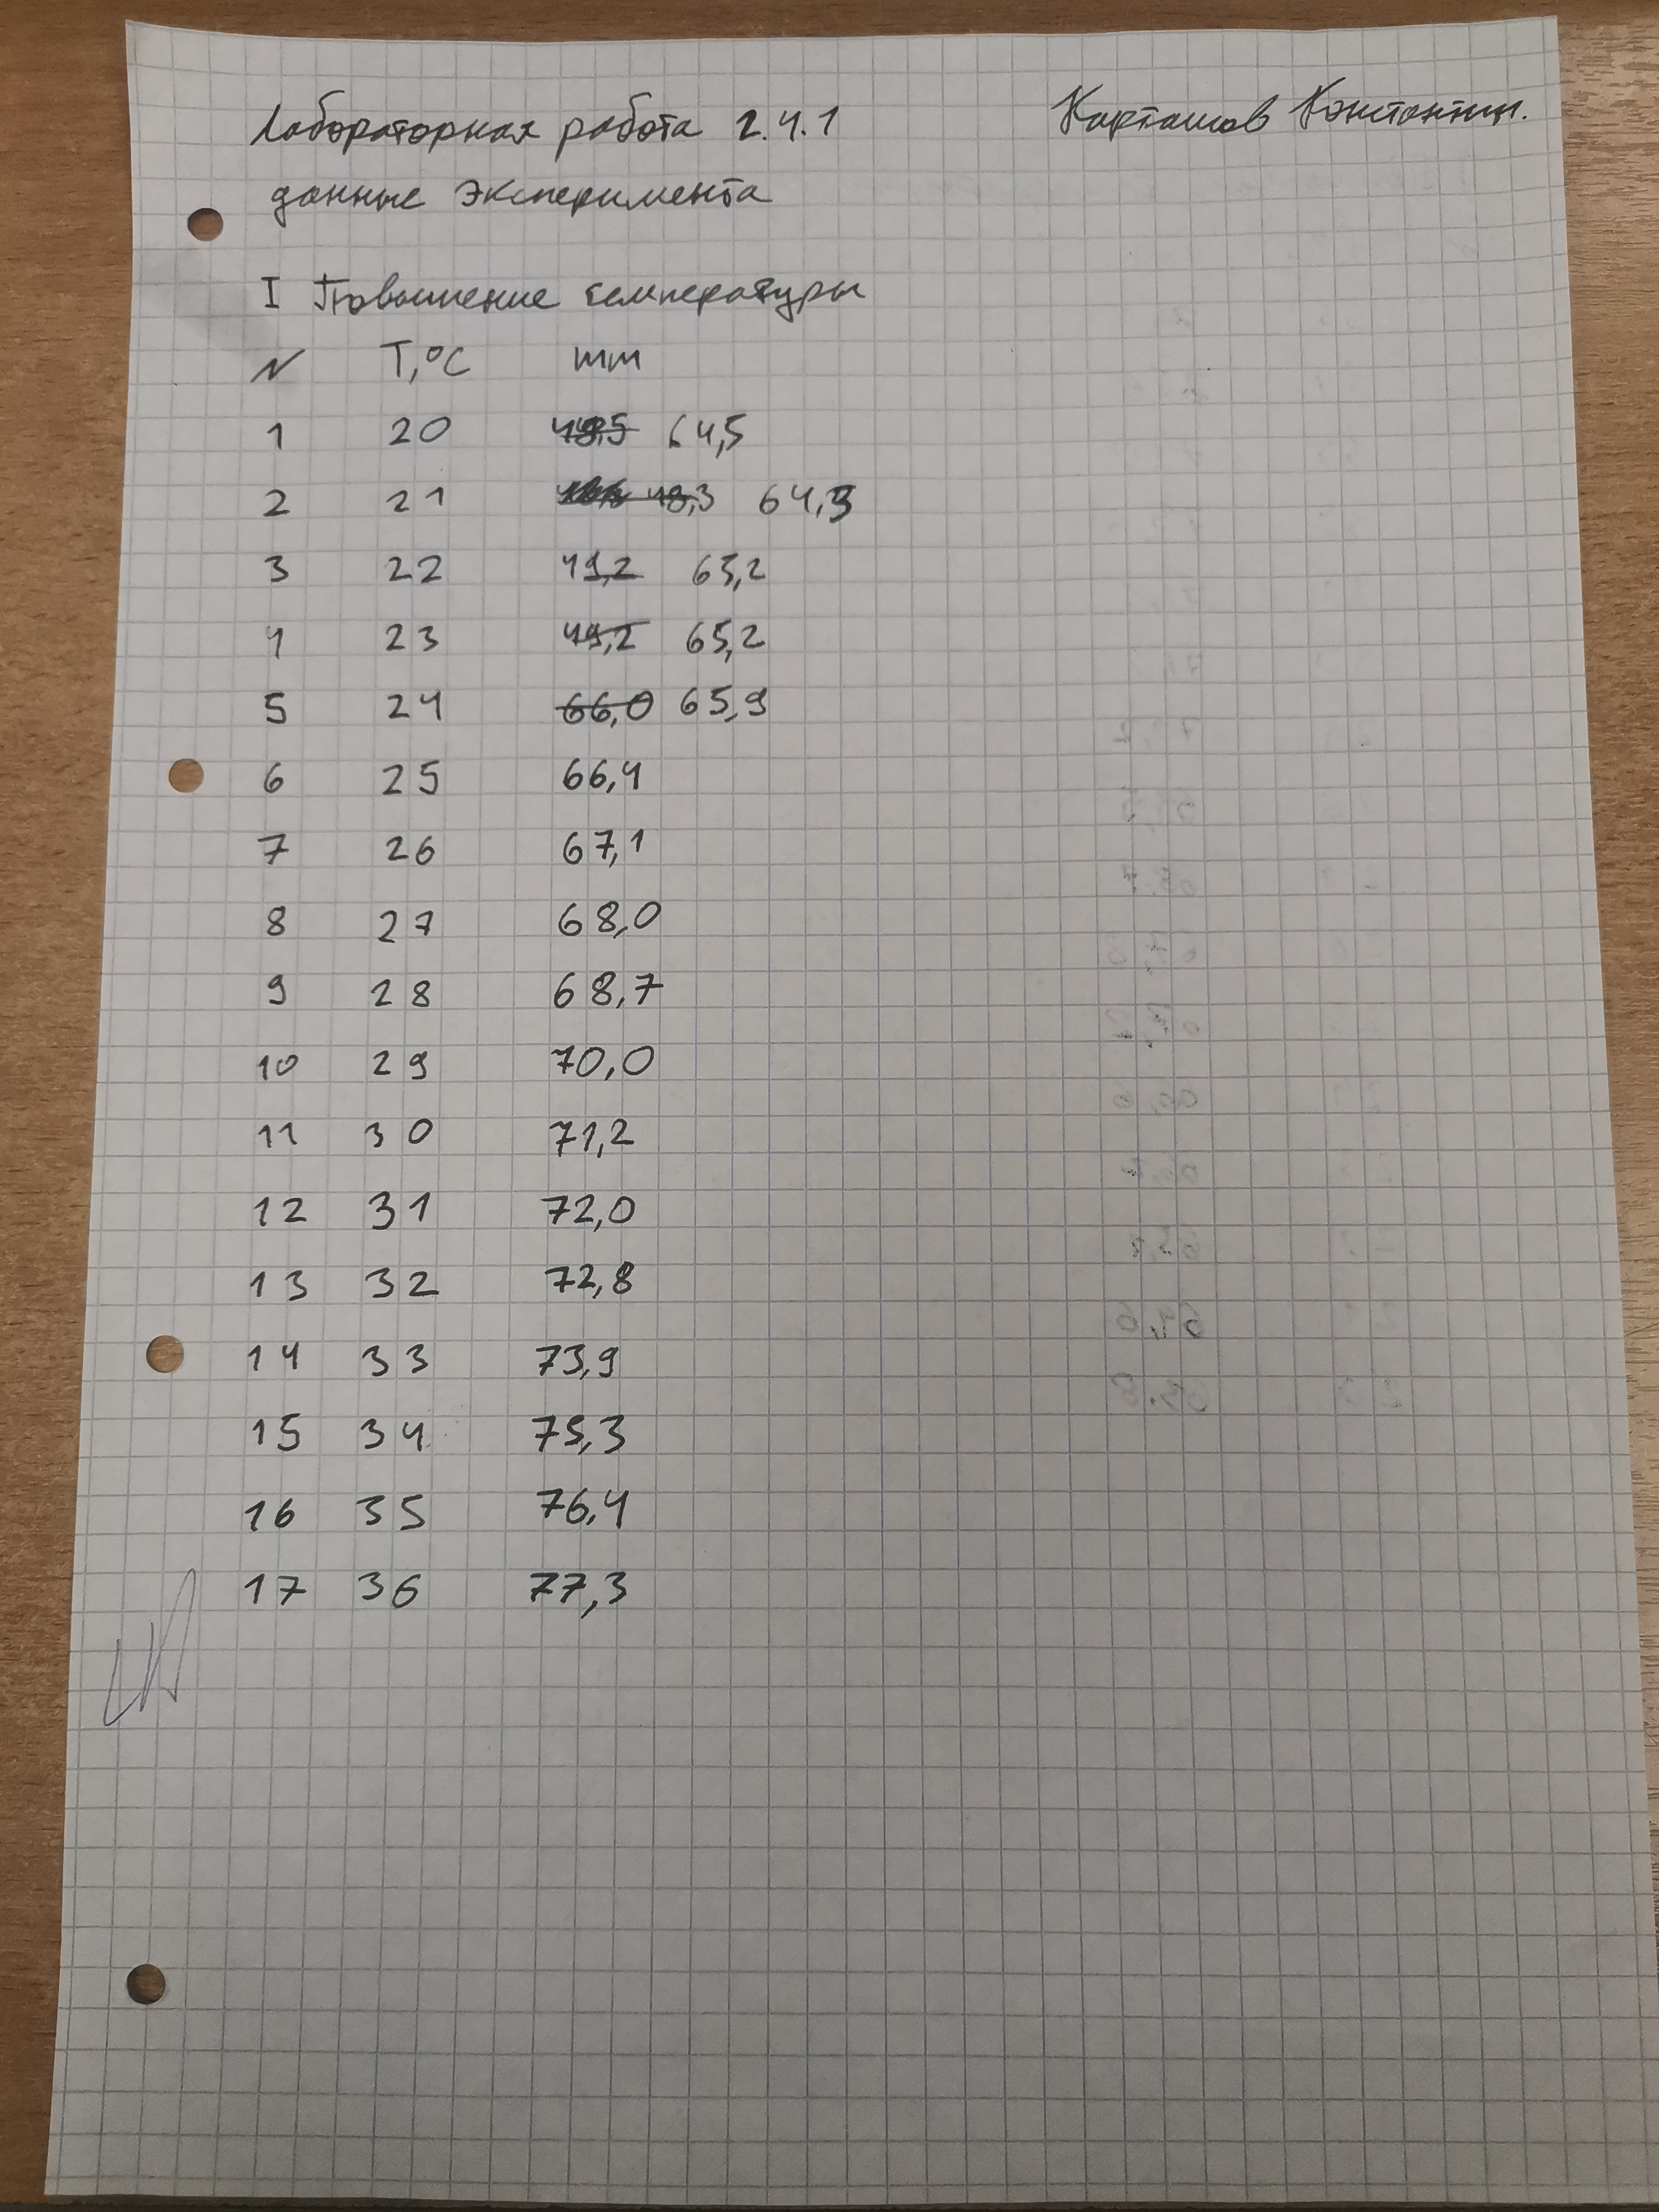 Лабораторная работа 2.4.1
Карташов Константин.
данные эксперимента
I Повышение температуры
N T,°C mm
1 20 64,5
2 21 48,3 64,9
3 22 49,2 65,2
4 23 49,2 65,2
5 24 66,0 65,9
6 25 66,4
7 26 67,1
8 27 68,0
9 28 68,7
10 29 70,0
11 30 71,2
12 31 72,0
13 32 72,8
14 33 73,9
15 34 75,3
16 35 76,4
17 36 77,3